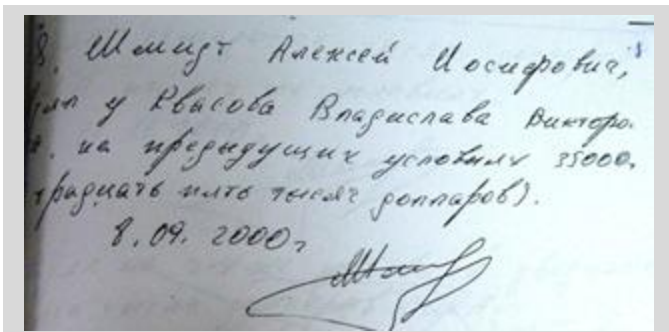 Шмидт Алексей Иосифович,
у Квасова Владислава Викторо.
на предыдущих условиях 35000.
тридцать пять тысяч долларов).
8.09.2000г